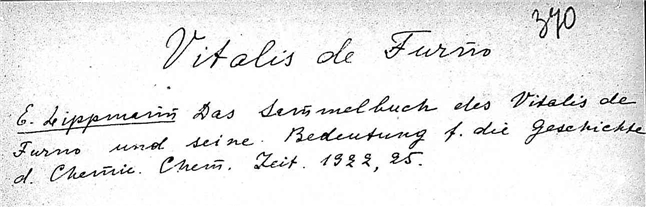 370
Vitalis de Furno
E. Lippmann Das Sammelbuch des Vitalis de
Furno und seine Bedeutung f. die Geschichte
d. Chemie. Chem. Zeit. 1922, 25.